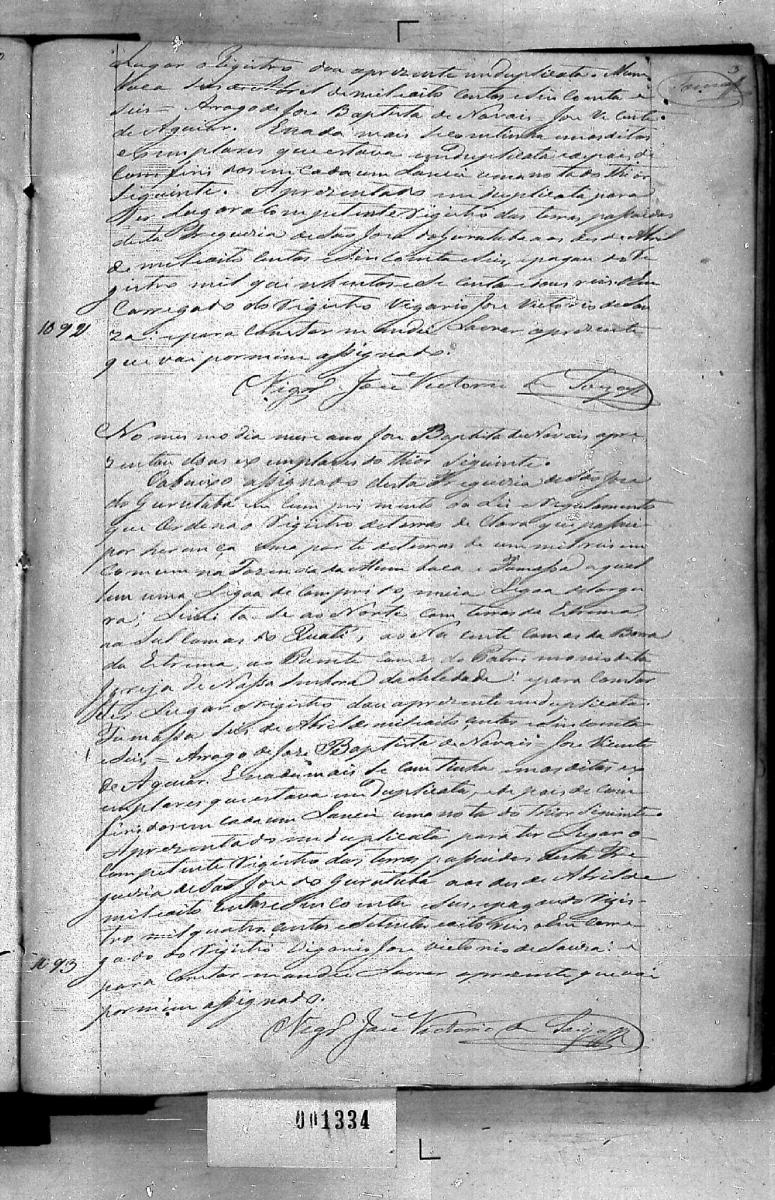 3
Souza
Lugar o Rigistro dou aprezente imduplicata. Mum
baca seis de Abril de mil eito centos e Sincoenta e
Seis = Arrogo de Joze Baptista de Novais - Joze Vicente
de Aguiar. Enada mais se continha nos ditos
exemplares que estava imduplicata, edepois de
comfiri dos em cada um Lancei uma nota do thior
Siguinte. Aprezentado imduplicata para
ter lugar o Competente Rigistro das terras possuidas
desta Freguezia de São Joze do Gurutuba aos des de Abril
de mil eito centos e Sincoenta e Seis, epagou do Re-
gistro mil quinhentos e secenta e dous reis. O En
Carregado do Rigistro Vigario Joze Victorio de Sou
za: epara Constar mandei Lavrar aprezente
que vai por mim assignado.
1092
Vigrº José Victorio de Souza
No mesmo dia mes e ano Joze Baptista de Novais apre-
zentou dous exemplares do thior Siguinte.
O abaixo assignado desta Freguezia de São Joze
do Gurutuba em Cumprimento da Lei e Regulamento
que Ordena o Rigistro de terras de Clara que possui
por herança uma parte de terras de um mil reis em
comum na Fazenda da Mumbaca e Fumassa aqual
tem uma Legoa de Comprido, meia Legoa de largu
ra; Limita-se ao Norte com terras da Estrema
ao Sul Com as do Quati, ao Nacente Com as da Barra
da Estrema, ao Poente Com as do Patrimonio da
Igreja de Nossa Senhora da Soledade: epara Constar
ter Lugar o rigistro dou aprezente imduplicata.
Fumassa Seis de Abril de mil eito centos e Sincoenta
e Seis, = Arrogo de Joze Baptista de Novais - Joze Vicente
de Aguiar. Enada mais se continha nos ditos ex
emplares que estava em Duplicata, e depois de com
firidos em cada um Lancei uma nota do thior Siguinte.
Aprezentado imduplicata para ter Lugar o
Competente Rigistro das terras possuidas desta Fre
guezia de São Joze do Gurutuba aos des de Abril de
mil eito centos e Sincoenta e Seis, epagou do Rigis-
tro mil quatro centos e setenta e oito reis. O En Carre
gado do Rigistro Vigario Joze Victorio de Souza: e
para Constar mandei Lavrar aprezente que vai
por mim assignado.
1093
Vigrº José Victorio de Souza
001334